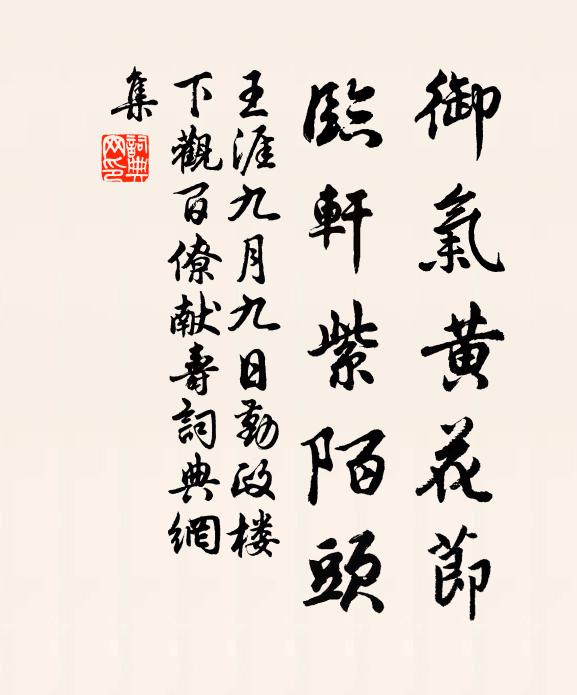 御氣黄花節
臨軒紫陌頭
王涯九月九日勤政楼
下觀百僚献壽詞典網
集
詞典
网印